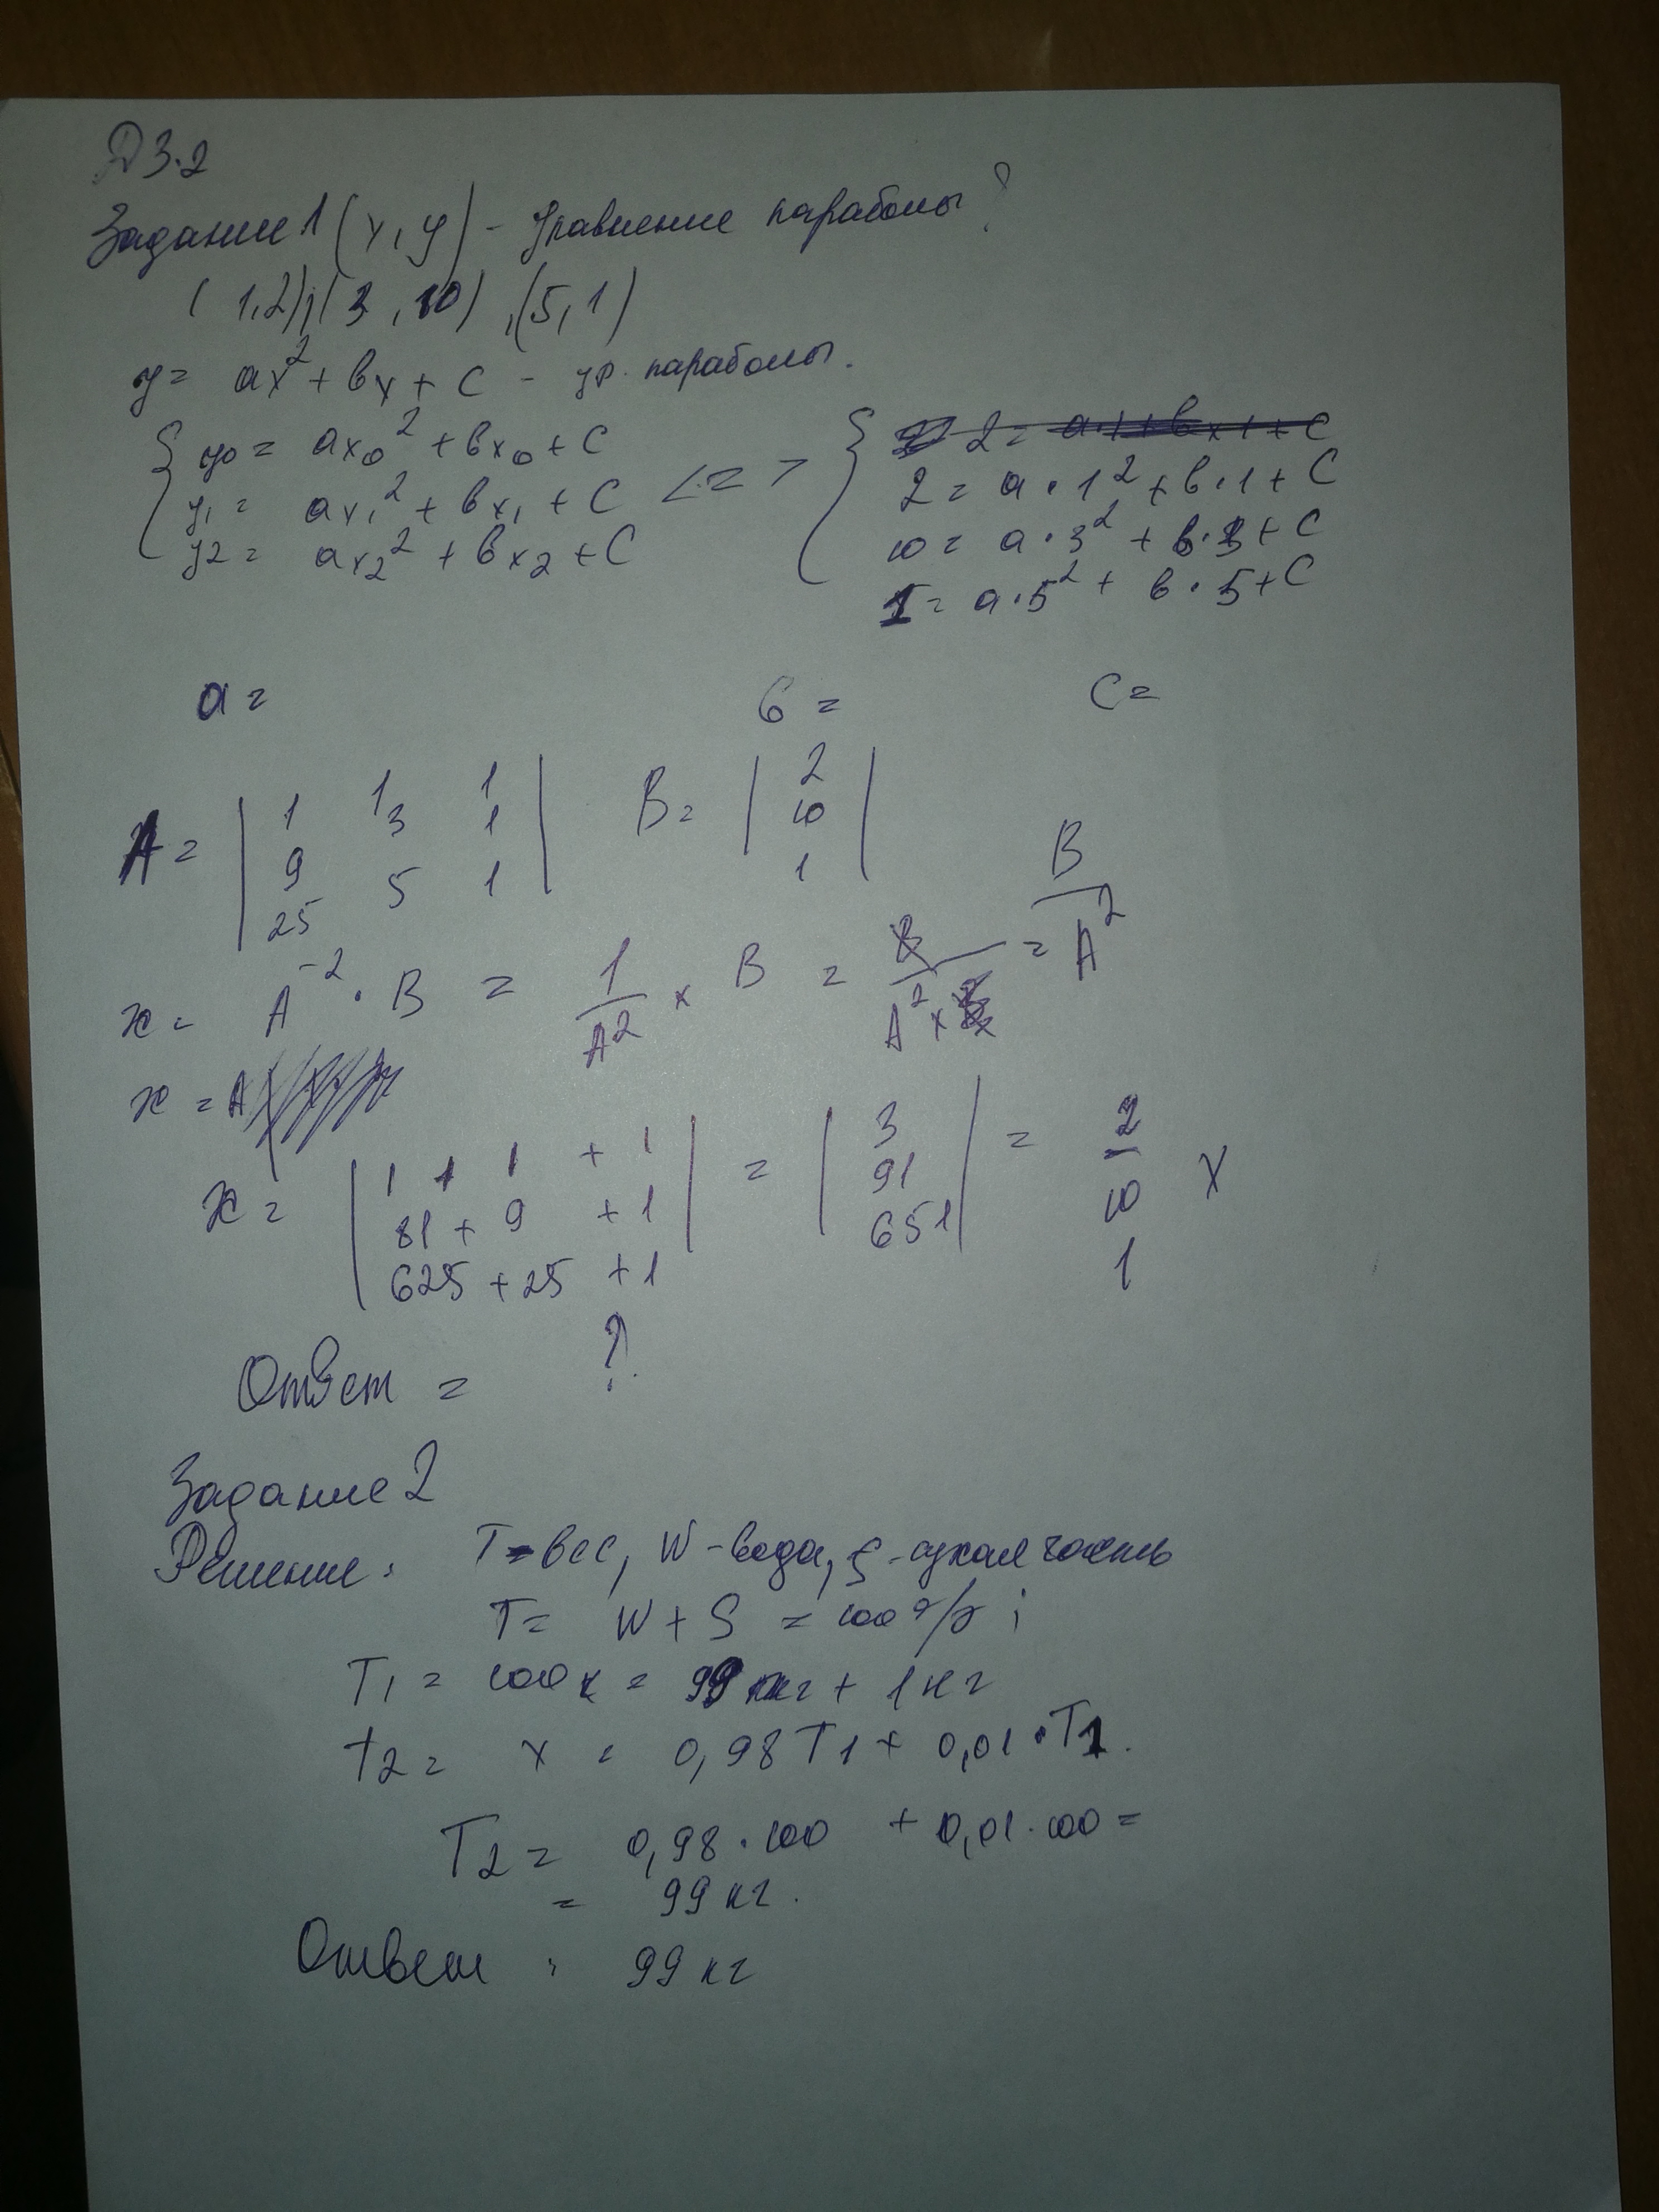 ДЗ.2
Задание 1 (x, y) - Уравнение параболы?
(1,2); (3, 10), (5, 1)
y = ax² + bx + c - ур. параболы.
{ y0 = ax0² + bx0 + C <=> {
y1 = ax1² + bx1 + C 2 = a·1² + b·1 + C
y2 = ax2² + bx2 + C 10 = a·3² + b·3 + C
1 = a·5² + b·5 + C
a = b = C =
A = | 1 1 1 | B = | 2 |
9 3 1 10
25 5 1 1
x = A⁻² · B = 1/A² × B = = B/A²
x = A
x = | 1 1 1 + 1 | = | 3 | = 2 x
81 + 9 + 1 91 10
625 + 25 + 1 651 1
Ответ = ?
Задание 2
Решение: T - вес, W - вода, S - сухая часть
T = W + S = 100%;
T1 = 100к = 99 кг + 1 кг
t2 = x = 0,98T1 + 0,01·T1.
T2 = 0,98·100 + 0,01·100 =
= 99 кг.
Ответ: 99 кг